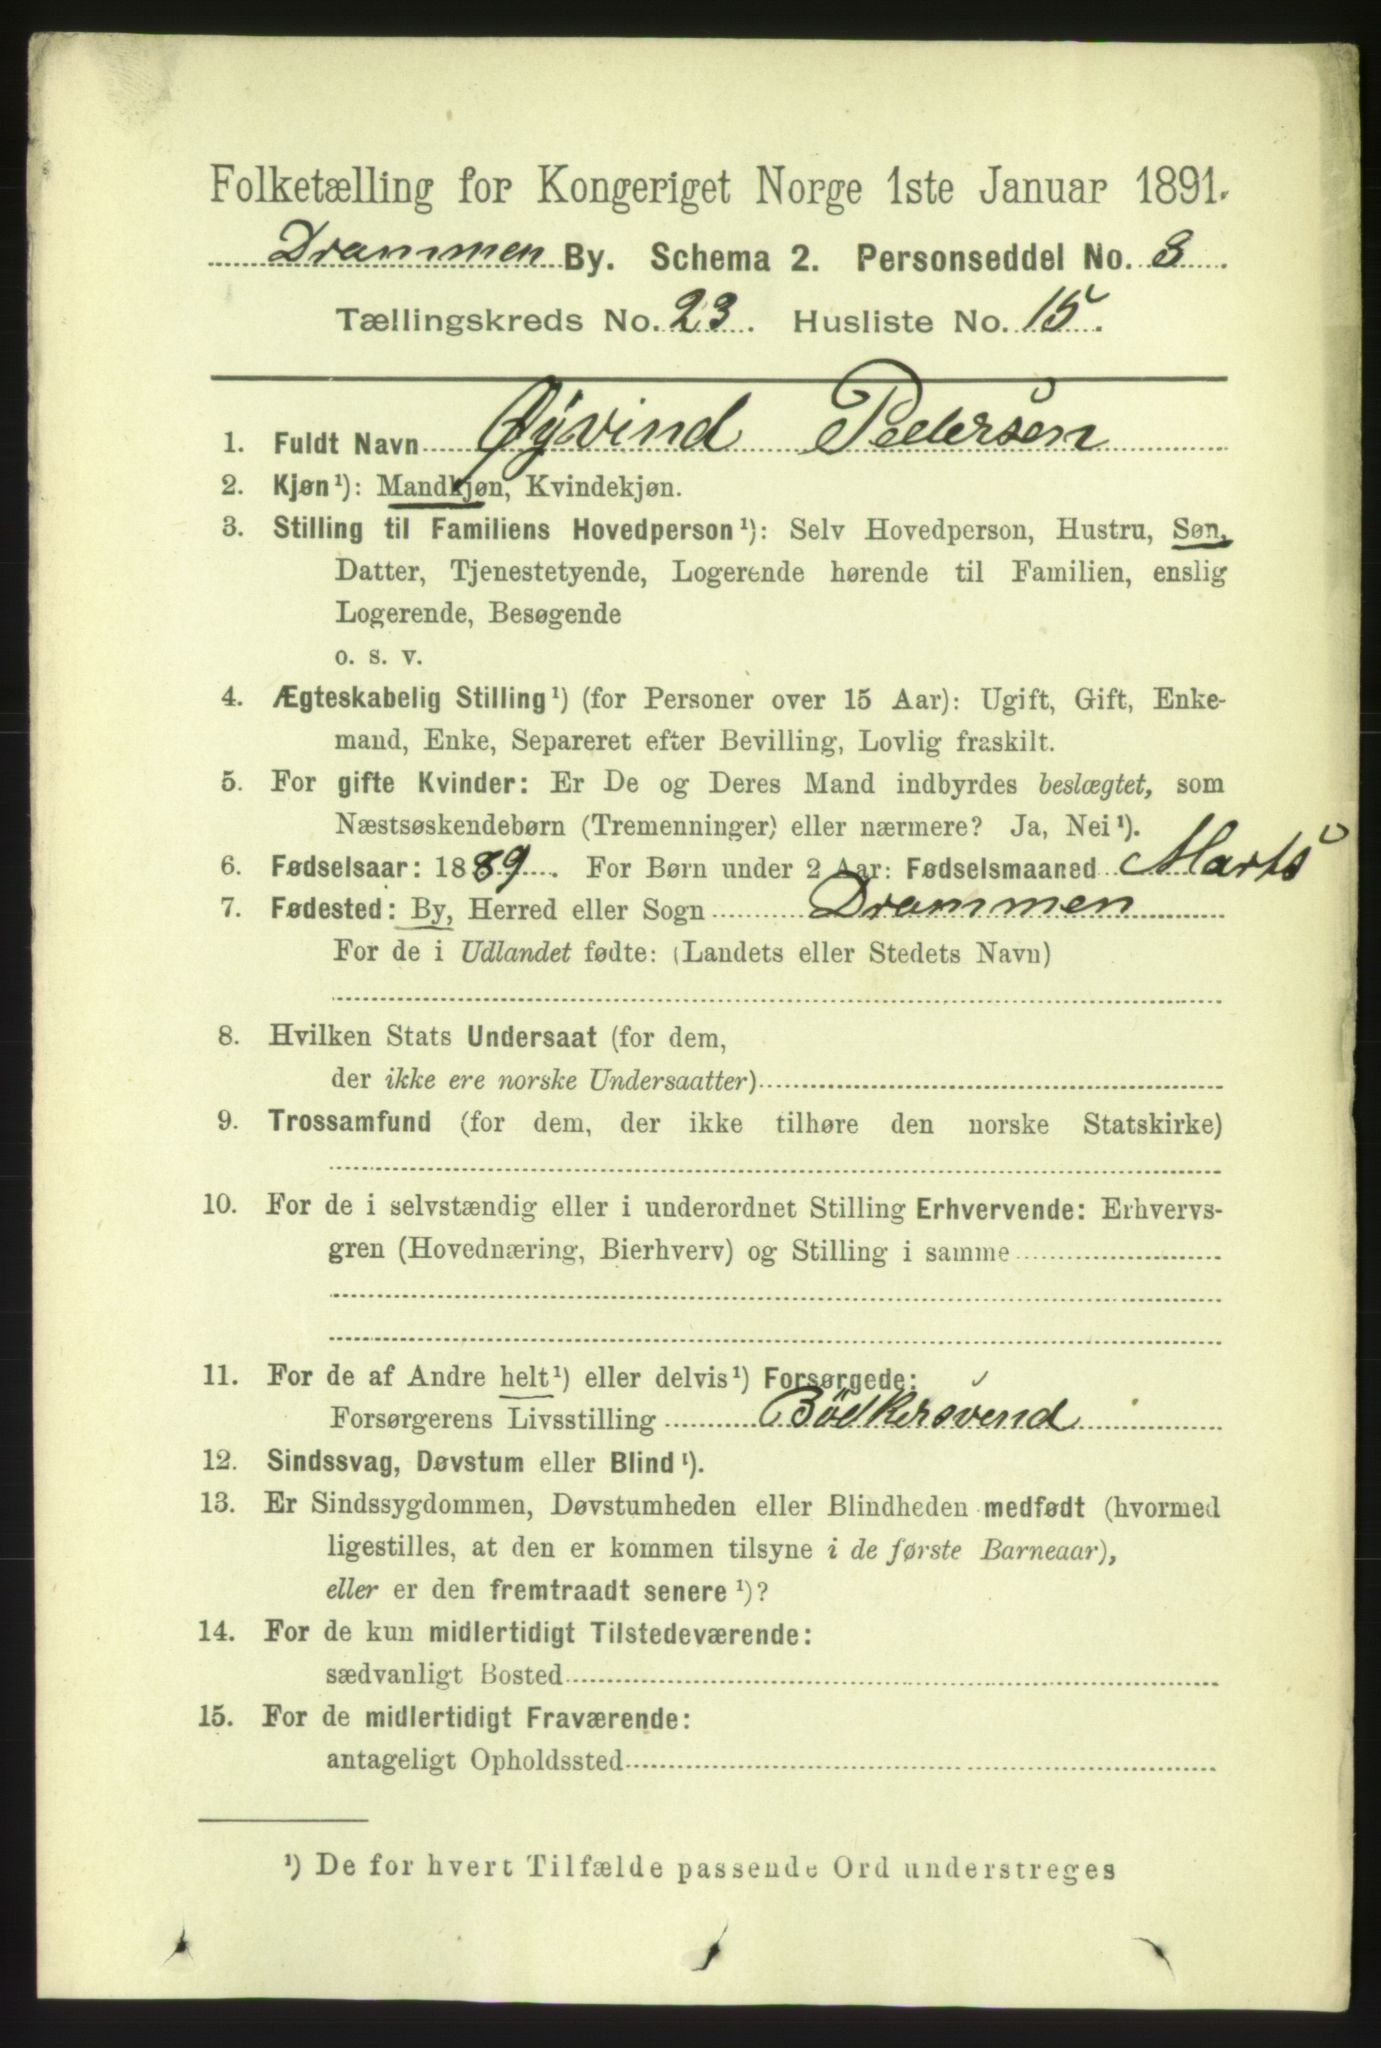 Folketælling for Kongeriget Norge 1ste Januar 1891.
Drammen By. Schema 2. Personseddel No. 3.
Tællingskreds No. 23. Husliste No. 15.
1. Fuldt Navn Øyvind Pedersen
2. Kjøn¹): Mandkjøn, Kvindekjøn.
3. Stilling til Familiens Hovedperson¹): Selv Hovedperson, Hustru, Søn,
Datter, Tjenestetyende, Logerende hørende til Familien, enslig
Logerende, Besøgende
o. s. v.
4. Ægteskabelig Stilling¹) (for Personer over 15 Aar): Ugift, Gift, Enke-
mand, Enke, Separeret efter Bevilling, Lovlig fraskilt.
5. For gifte Kvinder: Er De og Deres Mand indbyrdes beslægtet, som
Næstsøskendebørn (Tremenninger) eller nærmere? Ja, Nei¹).
6. Fødselsaar: 1889. For Børn under 2 Aar: Fødselsmaaned Marts
7. Fødested: By, Herred eller Sogn Drammen
For de i Udlandet fødte: (Landets eller Stedets Navn)
8. Hvilken Stats Undersaat (for dem,
der ikke ere norske Undersaatter)
9. Trossamfund (for dem, der ikke tilhøre den norske Statskirke)
10. For de i selvstændig eller i underordnet Stilling Erhvervende: Erhvervs-
gren (Hovednæring, Bierhverv) og Stilling i samme
11. For de af Andre helt¹) eller delvis¹) Forsørgede:
Forsørgerens Livsstilling Bödkersvend
12. Sindssvag, Døvstum eller Blind¹).
13. Er Sindssygdommen, Døvstumheden eller Blindheden medfødt (hvormed
ligestilles, at den er kommen tilsyne i de første Barneaar),
eller er den fremtraadt senere¹)?
14. For de kun midlertidigt Tilstedeværende:
sædvanligt Bosted
15. For de midlertidigt Fraværende:
antageligt Opholdssted
¹) De for hvert Tilfælde passende Ord understreges